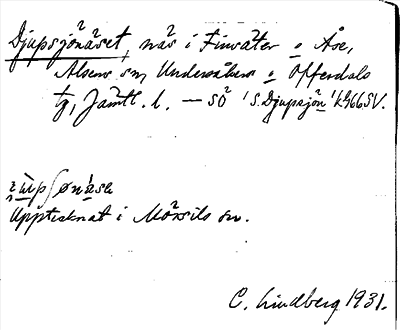 Djupsjönäset, näs i Finsäter o Åse,
Alsens sn, Undersåkers o Offerdals
tg, Jämtl. l. — SÖ 'S. Djupsjön' kh66SV.
Upptecknat i Mörsils sn.
C. Lindberg 1931.